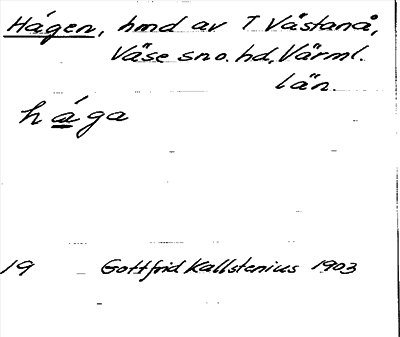 Hågen, hmd av T Västanå,
Väse sn o. hd, Värml.
län.
hága
19 Gottfrid Kallstenius 1903